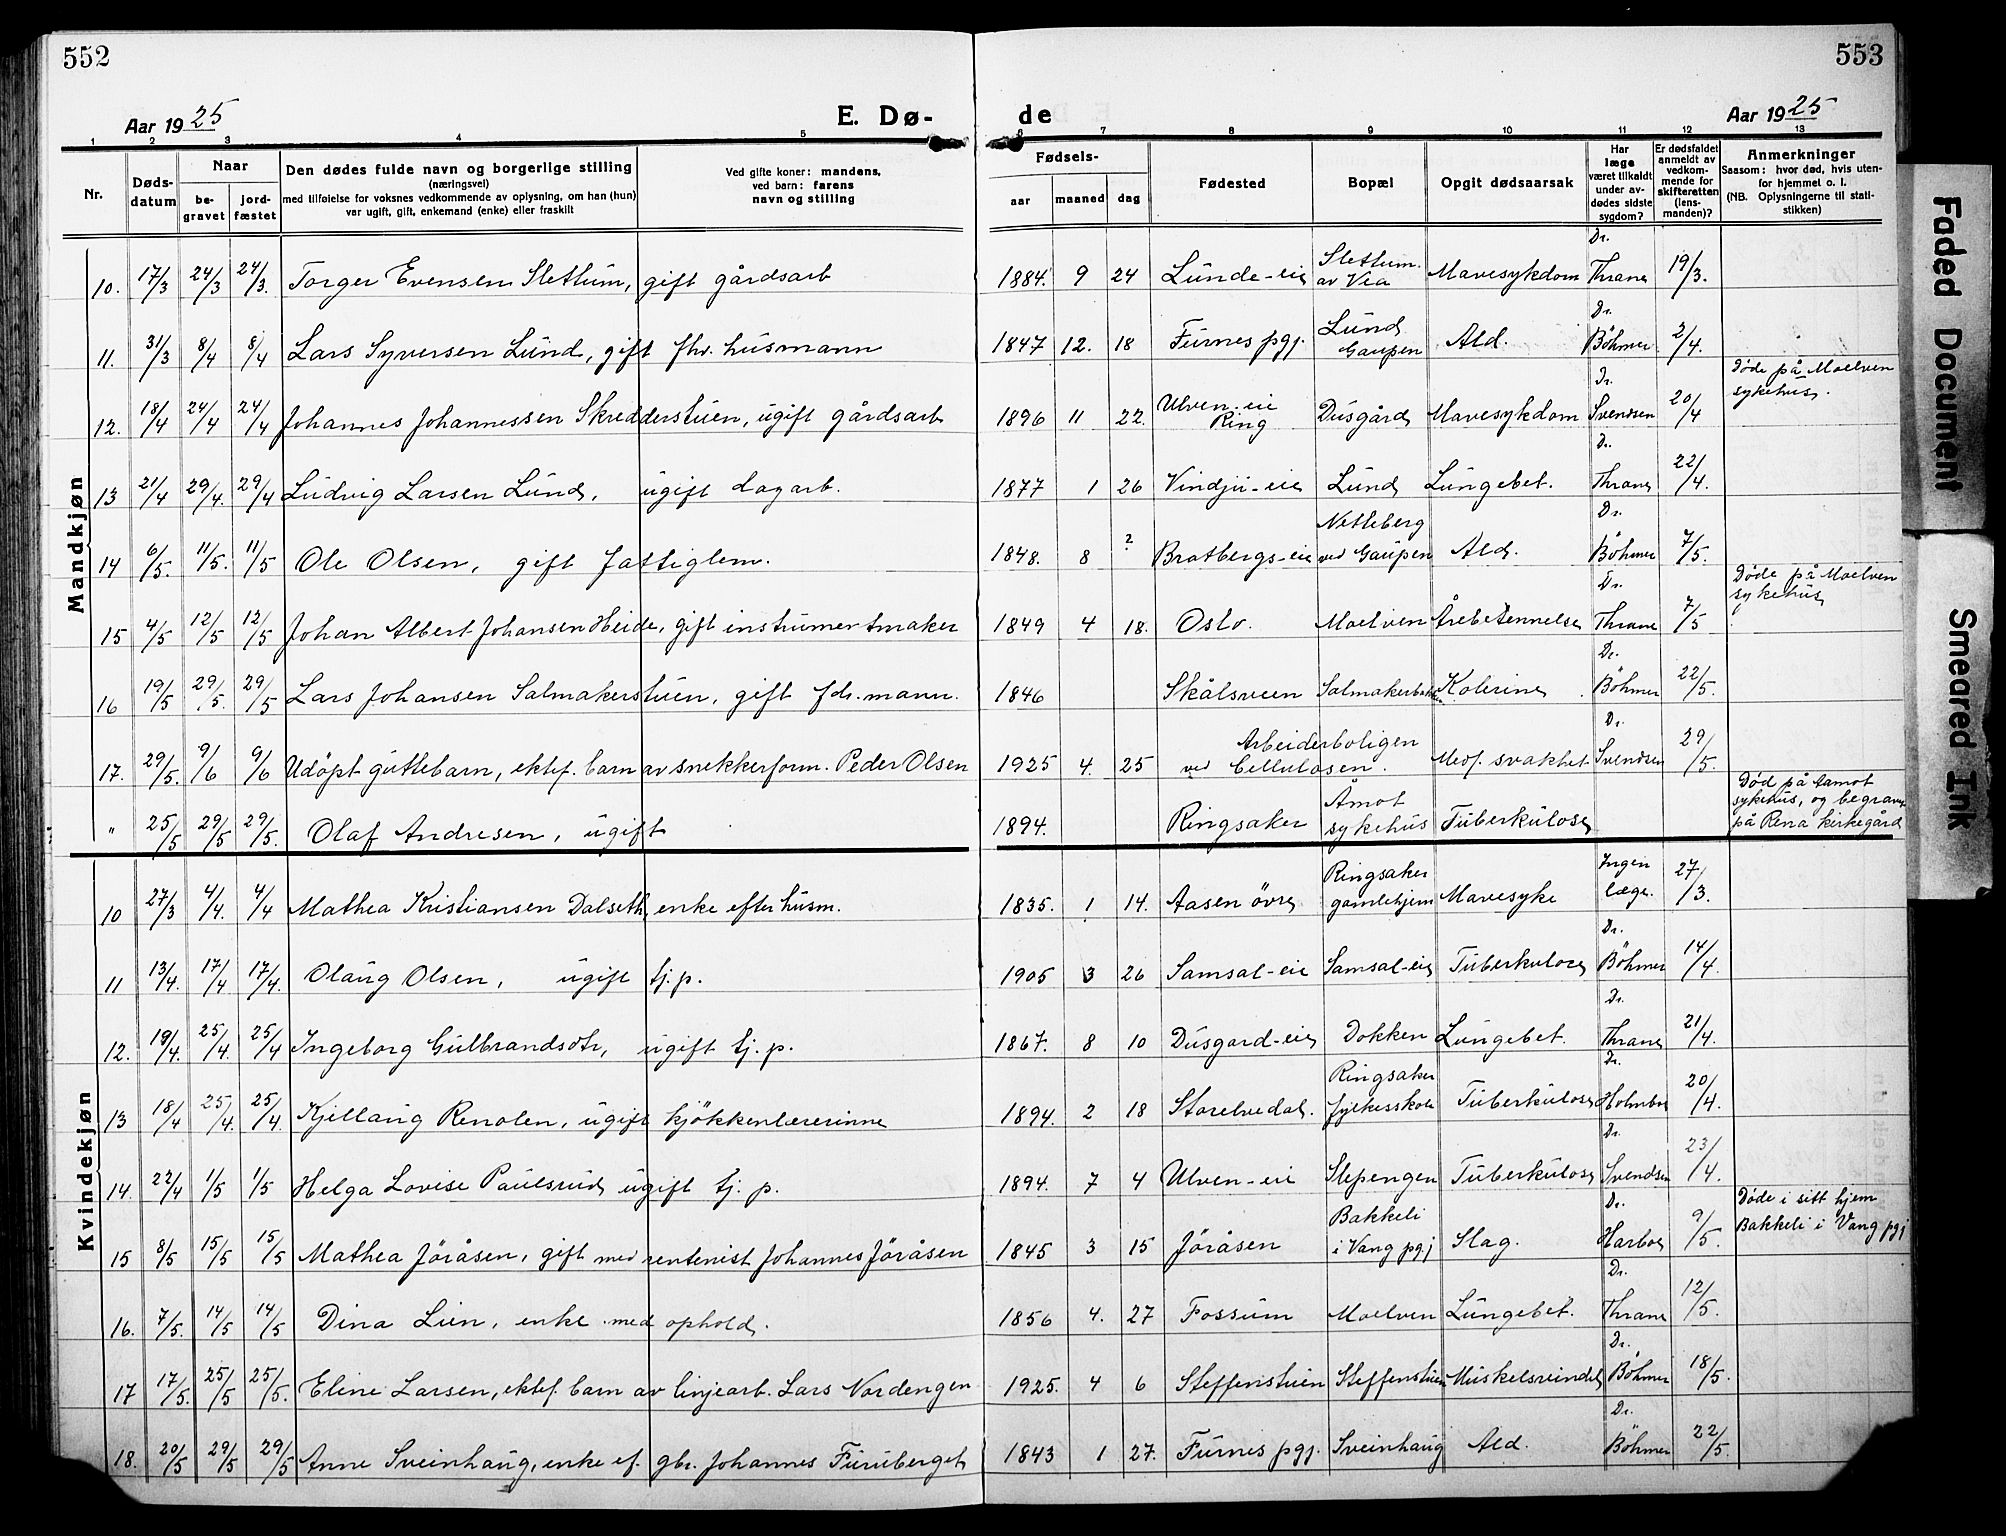 552
553
Aar 1925
E. Dø-
de
Aar 1925
1 2 3 4 5 6 7 8 9 10 11 12 13
Nr.
Døds-
datum
Naar
be-
gravet
jord-
fæstet
Den dødes fulde navn og borgerlige stilling
(næringsvei)
med tilføielse for voksnes vedkommende av oplysning, om han (hun)
var ugift, gift, enkemand (enke) eller fraskilt
Ved gifte koner: mandens,
ved barn: farens
navn og stilling
Fødsels-
aar maaned dag
Fødested
Bopæl
Opgit dødsaarsak
Har
læge
været tilkaldt
under av-
dødes sidste
sygdom?
Er dødsfaldet
anmeldt av
vedkom-
mende for
skifteretten
(lens-
manden)?
Anmerkninger
Saasom: hvor død, hvis uten-
for hjemmet o. l.
(NB. Oplysningerne til stati-
stikken)
Mandkjøn
10. 17/3 24/3 24/3. Torger Evensen Slettum, gift gårdsarb 1884. 9 24 Lunde-eie Slettum. av Vea Mavesykdom Dr. Thrane 19/3.
11. 31/3 8/4 8/4 Lars Syversen Lund, gift fhv. husmann 1847 12. 18 Furnes pgj. Lund Gaupen Ald. Dr. Böhmer 2/4.
12. 18/4 24/4 24/4 Johannes Johannessen Skredderstuen, ugift gårdsarb 1896 11 22. Ulven-eie Ring Dusgård Mavesykdom Dr. Svendsen 20/4 Döde på Moelven sykehus.
13 21/4 29/4. 29/4 Ludvig Larsen Lund, ugift dagarb. 1877 1 26 Vindju-eie Lund Lungebet. Dr. Thrane 22/4.
14 6/5. 11/5. 11/5 Ole Olsen, gift fattiglem. 1848. 8 ? Bratbergs-eie Netteberg ved Gaupen Ald. Dr. Böhmer 7/5.
15 4/5 12/5 12/5 Johan Albert Johansen Heide, gift instrumentmaker 1849 4 18. Oslo. Moelven Årebetennelse Dr. Thrane 7/5 Döde på Moelven sykehus
16 19/5 29/5. 29/5 Lars Johansen Salmakerstuen, gift fdr. mann. 1846 Skålsveen Kolerine Dr. Böhmer 22/5.
17. 29/5. 9/6 9/6 Udöpt guttebarn, ektef. barn av snekkerform. Peder Olsen 1925 4. 25 Arbeiderboligen ved Cellulosen. Medf. svakhet Dr. Svendsen 29/5.
" 25/5 29/5 29/5. Olaf Andresen, ugift 1894. Ringsaker Åmot sykehus Tuberkulose Död på Aamot sykehus, og begravet på Rena kirkegård
Kvindekjøn
10 27/3 4/4. 4/4 Mathea Kristiansen Dalseth, enke efter husm. 1835. 1 14. Aasen övre Ringsaker gamlehjem Mavesyke Ingen læge. 27/3.
11 13/4. 17/4 17/4. Olaug Olsen, ugift tj.p. 1905 3 26 Samsal-eie Samsal-eie Tuberkulose Dr. Böhmer 14/4
12. 19/4. 25/4. 25/4 Ingeborg Gulbrandsdtr, ugift tj.p. 1867. 8 10 Dusgard-eie Dokken Lungebet. Dr. Thrane 21/4.
13 18/4 25/4. 25/4. Kjellaug Renolen, ugift kjökkenlærerinne 1894. 2 18 Storelvedal. Ringsaker fylkesskole Tuberkulose Dr. Holmboe 20/4.
14. 22/4 1/5 1/5 Helga Lovise Paulsrud ugift tj. p. 1894. 7 4 Ulven-eie Slepengen Tuberkulose Dr. Svendsen 23/4.
15 8/5 15/5 15/5 Mathea Jöråsen, gift med rentenist Johannes Jöråsen 1845 3 15 Jöråsen Bakkeli i Vang pgj Slag. Dr. Harboe 9/5. Döde i sitt hjem Bakkeli i Vang pgj
16. 7/5. 14/5 14/5 Dina Lien, enke med ophold. 1856 4. 27 Fossum Moelven Lungebet. Dr. Thrane 12/5.
17 17/5. 25/5 25/5. Eline Larsen, ektef. barn av linjearb. Lars Nordengen 1925. 4 6 Steffenstuen Steffenstuen Muskelsvindel Dr. Böhmer 18/5.
18. 20/5 29/5 29/5 Anne Sveinhaug, enke ef. gbr. Johannes Furuberget 1843 1 27. Furnes pgj. Sveinhaug Ald. Dr. Böhmer 22/5.
Faded Document
Smeared Ink